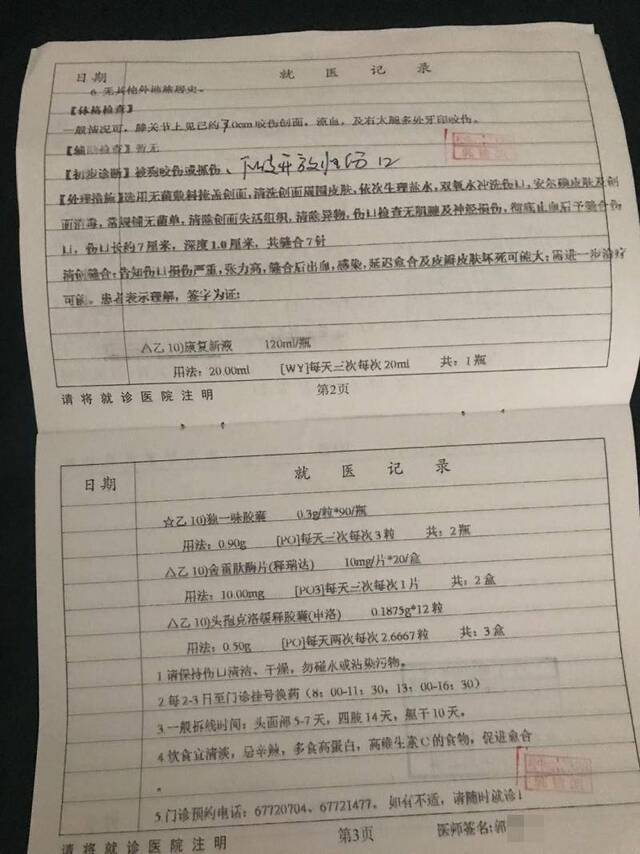 日期 就医记录
6.无其他外地旅居史。
【体格检查】
一般情况可，膝关节上见已约7.0cm咬伤创面，流血，及右大腿多处牙印咬伤。
【辅助检查】暂无
【初步诊断】被狗咬伤或抓伤、下肢开放性伤口
【处理措施】选用无菌敷料掩盖创面，清洗创面周围皮肤，依次生理盐水，双氧水冲洗伤口，安尔碘皮肤及创
面消毒，常规铺无菌单，清除创面失活组织，清除异物，伤口检查无肌腱及神经损伤，彻底止血后予缝合伤
口，伤口长约7厘米，深度1.0厘米，共缝合7针
清创缝合：告知伤口损伤严重，张力高，缝合后出血，感染，延迟愈合及皮瓣皮肤坏死可能大；需进一步治疗
可能。患者表示理解，签字为证：
△乙10)康复新液 120ml/瓶
用法：20.00ml [WY]每天三次每次20ml 共：1瓶
请将就诊医院注明 第2页
日期 就医记录
☆乙10)独一味胶囊 0.3g/粒*90/瓶
用法：0.90g [PO]每天三次每次3粒 共：2瓶
△乙10)舍雷肽酶片(释瑞达) 10mg/片*20/盒
用法：10.00mg [PO3]每天三次每次1片 共：2盒
△乙10)头孢克洛缓释胶囊(申洛) 0.1875g*12粒
用法：0.50g [PO]每天两次每次2.6667粒 共：3盒
1.请保持伤口清洁、干燥，勿碰水或沾染污物。
2.每2-3日至门诊挂号换药（8：00-11：30，13：00-16：30）
3.一般拆线时间：头面部5-7天，四肢14天，躯干10天。
4.饮食宜清淡，忌辛辣，多食高蛋白，高维生素C的食物，促进愈合
。
5.门诊预约电话：67720704、67721477。如有不适，请随时就诊！
请将就诊医院注明 第3页 医师签名：郭